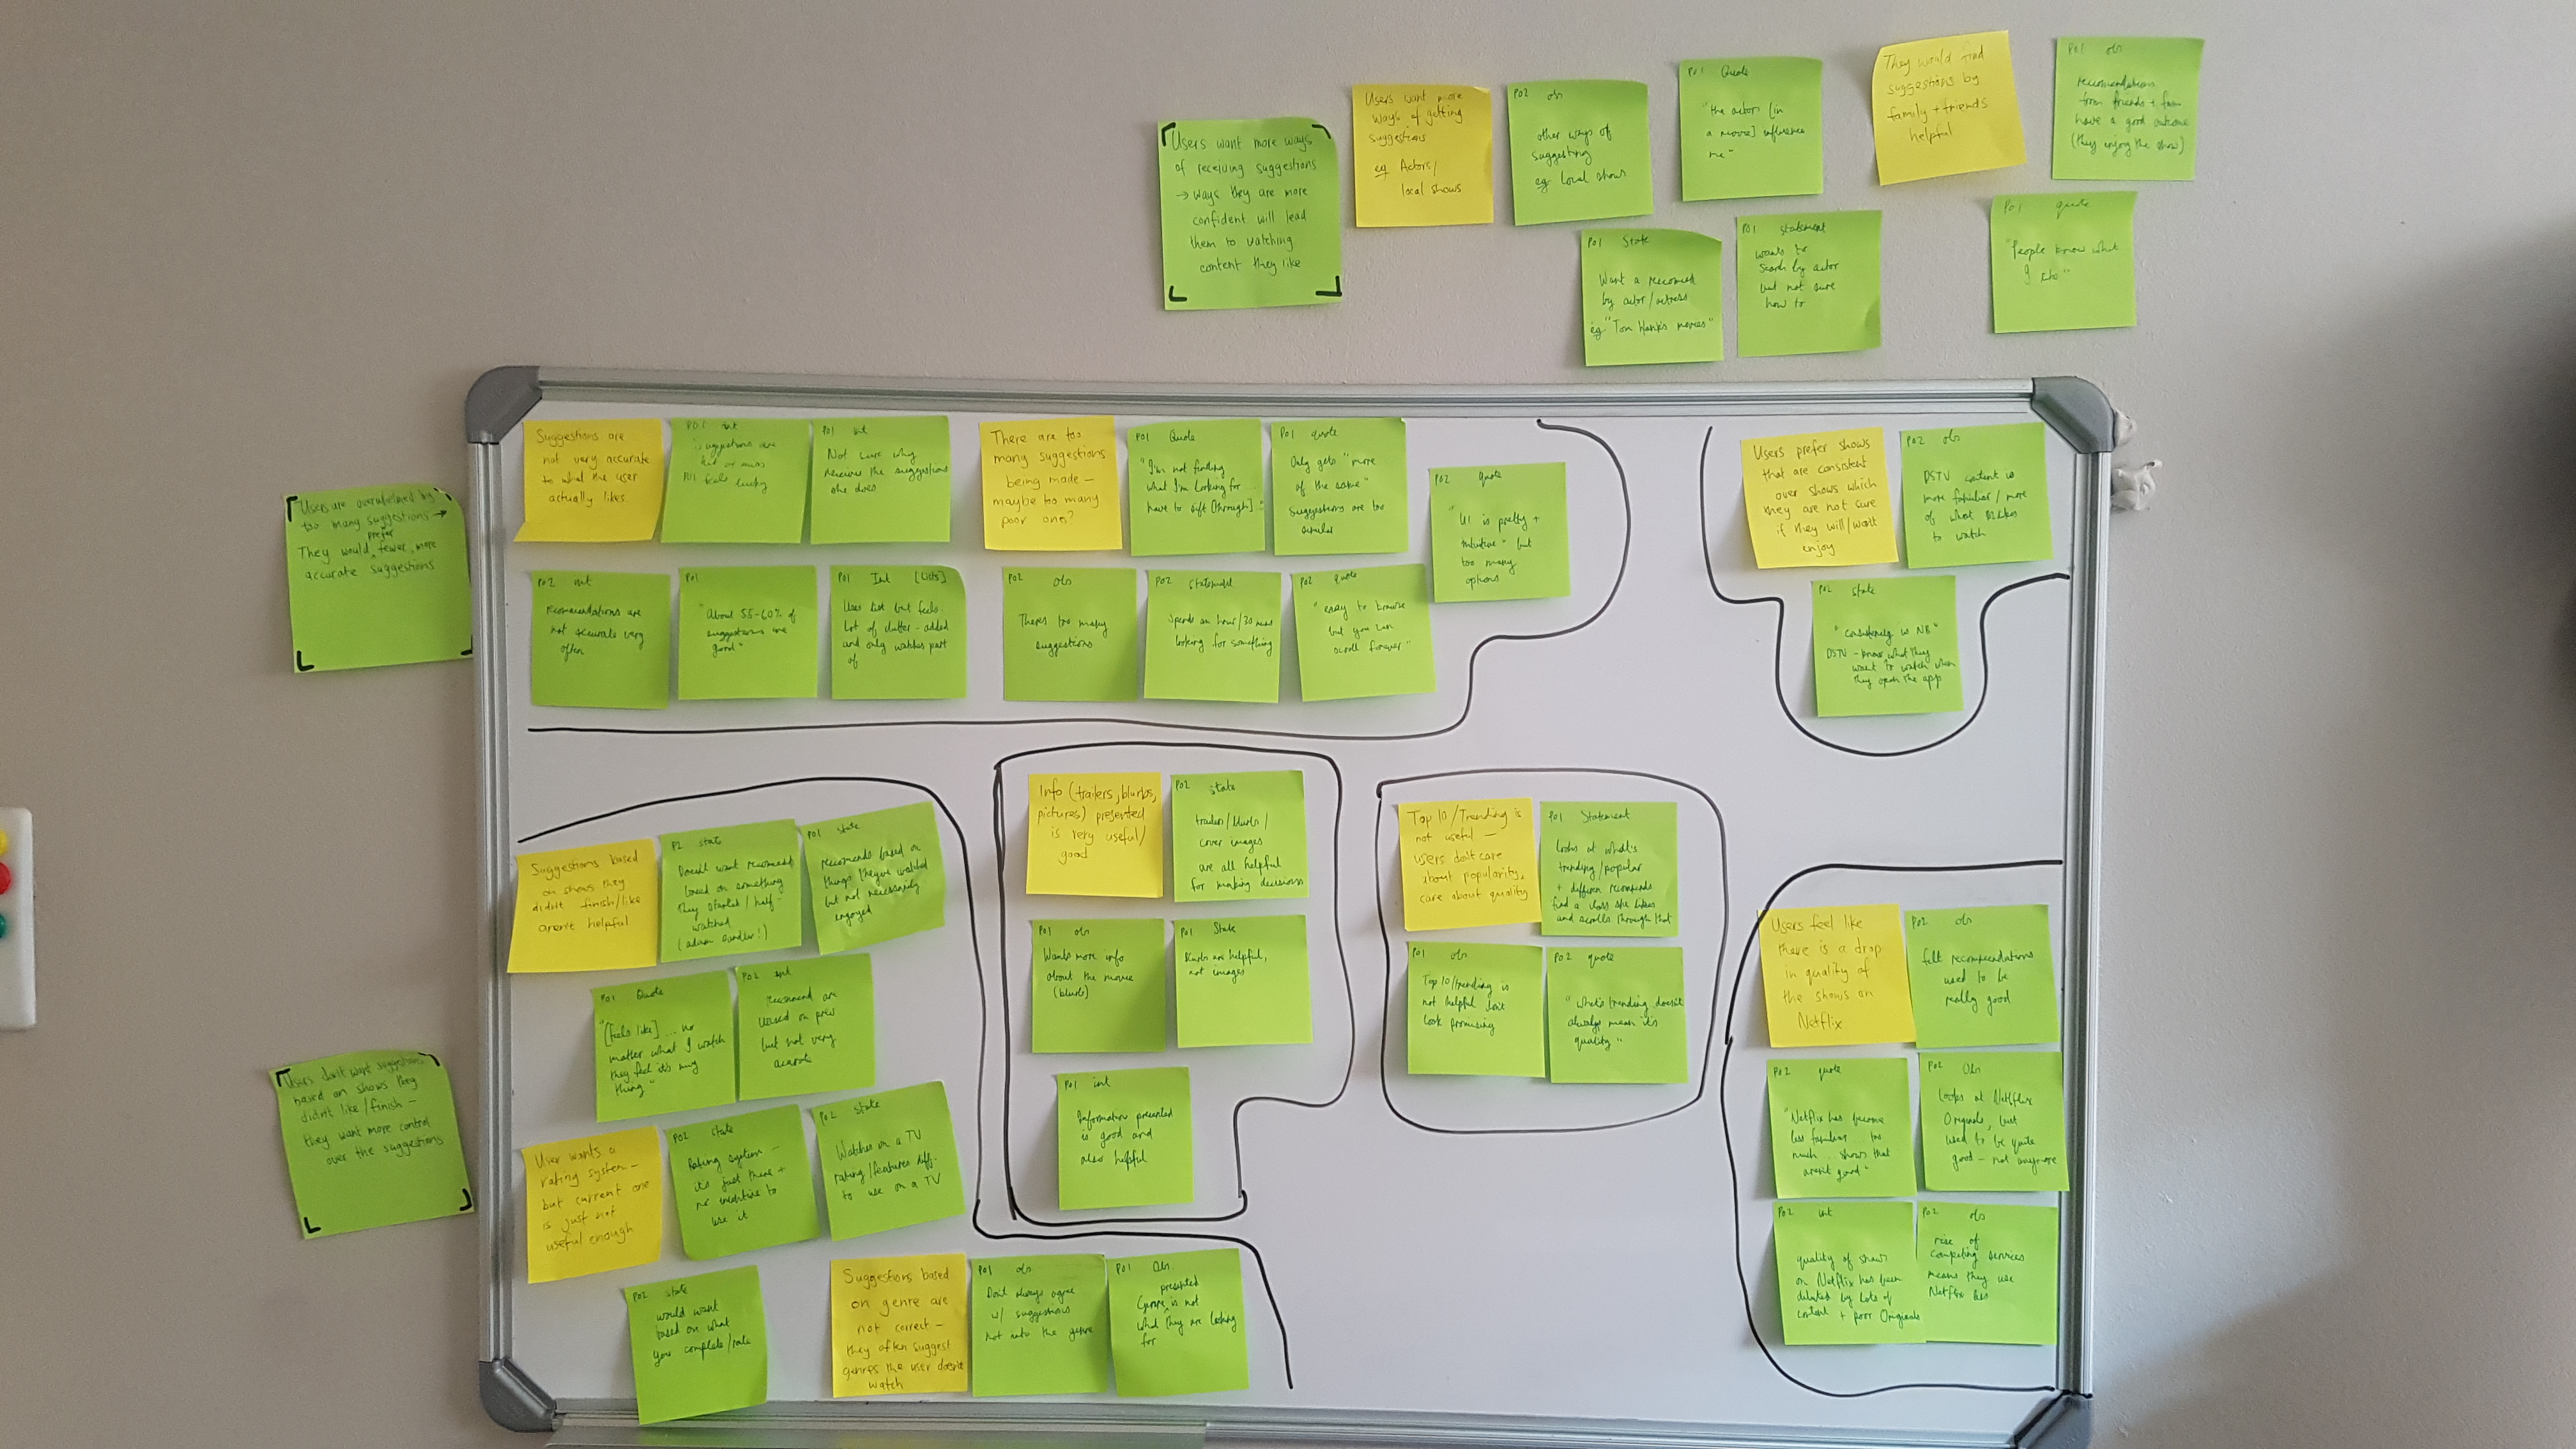 Users want more ways
of receiving suggestions
→ ways they are more
confident will lead
them to watching
content they like
Users want more
ways of getting
suggestions
eg Actors/
local shows
P02 obs
other ways of
suggesting
eg Local shows
P01 Quote
"the actors [in
a movie] influence
me"
They would find
suggestions by
family + friends
helpful
P01 obs
recommendations
from friends + fam
have a good outcome
(they enjoy the show)
P01 State
Want a recommend
by actor/actress
eg. "Tom Hanks movies"
P01 statement
wants to
search by actor
but not sure
how to
P01 quote
"People know what
I like"
Users are overwhelmed by
too many suggestions →
They would prefer fewer, more
accurate suggestions
Suggestions are
not very accurate
to what the user
actually likes.
P01 int
suggestions are
hit or miss
P01 feels lucky
P01 int
Not sure why
receives the suggestions
she does
There are too
many suggestions
being made –
maybe too many
poor ones?
P01 Quote
"I'm not finding
what I'm looking for
have to sift [through]"
P01 quote
Only gets "more
of the same"
suggestions are too
similar
P02 quote
"UI is pretty +
intuitive" but
too many
options
P02 int
recommendations are
not accurate very
often
P01
"About 55-60% of
suggestions are
good"
P01 Int [Lists]
Uses list but feels
Lot of clutter - added
and only watches part
of
P02 obs
Theres too many
suggestions
P02 Statement
Spends an hour/30 mins
looking for something
P02 quote
"easy to browse
but you can
scroll forever"
Users prefer shows
that are consistent
over shows which
they are not sure
if they will/wont
enjoy
P02 obs
DSTV content is
more familiar/more
of what
to watch
P02 state
"consistency is NB"
DSTV - know what they
want to watch when
they open the app
Users don't want suggestions
based on shows they
didn't like/finish –
they want more control
over the suggestions
Suggestions based
on shows they
didn't finish/like
aren't helpful
P2 state
Doesn't want recommend
based on something
they started/half-
watched
(adam sandler!)
P01 state
recommends based on
things they've watched
but not necessarily
enjoyed
P01 Quote
"[feels like] ... no
matter what I watch
they feel it's my
thing"
P02 int
recommend are
based on prev
but not very
accurate
User wants a
rating system –
but current one
is just not
useful enough
P02 state
Rating system –
it's just there +
no incentive to
use it
P02 state
Watches on a TV
rating/features diff.
to use on a TV
P02 state
would want
based on what
you complete/rate
Suggestions based
on genre are
not correct –
they often suggest
genres the user doesn't
watch
P01 obs
Don't always agree
w/ suggestions
not into the genre
P01 Obs.
Genre presented is not
what they are looking
for
Info (trailers, blurbs,
pictures) presented
is very useful/
good
P02 state
trailers/blurbs/
cover images
are all helpful
for making decisions
P01 obs
Wants more info
about the movie
(blurb)
P01 State
Blurbs are helpful,
not images
P01 int
Information presented
is good and
also helpful
Top 10/Trending is
not useful –
users don't care
about popularity,
care about quality
P01 Statement
Looks at what's
trending/popular
+ different recommends
find a class she likes
and scrolls through that
P01 obs
Top 10/trending is
not helpful don't
look promising
P02 quote
"what's trending doesn't
always mean it's
quality"
Users feel like
there is a drop
in quality of
the shows on
Netflix
P02 obs
felt recommendations
used to be
really good
P02 quote
"Netflix has become
less familiar... too
much... shows that
aren't good"
P02 Obs
Looks at Netflix
Originals, but
used to be quite
good – not anymore
P02 int
quality of shows
on Netflix has been
diluted by lots of
content + poor Originals
P02 obs
rise of
competing services
means they use
Netflix less